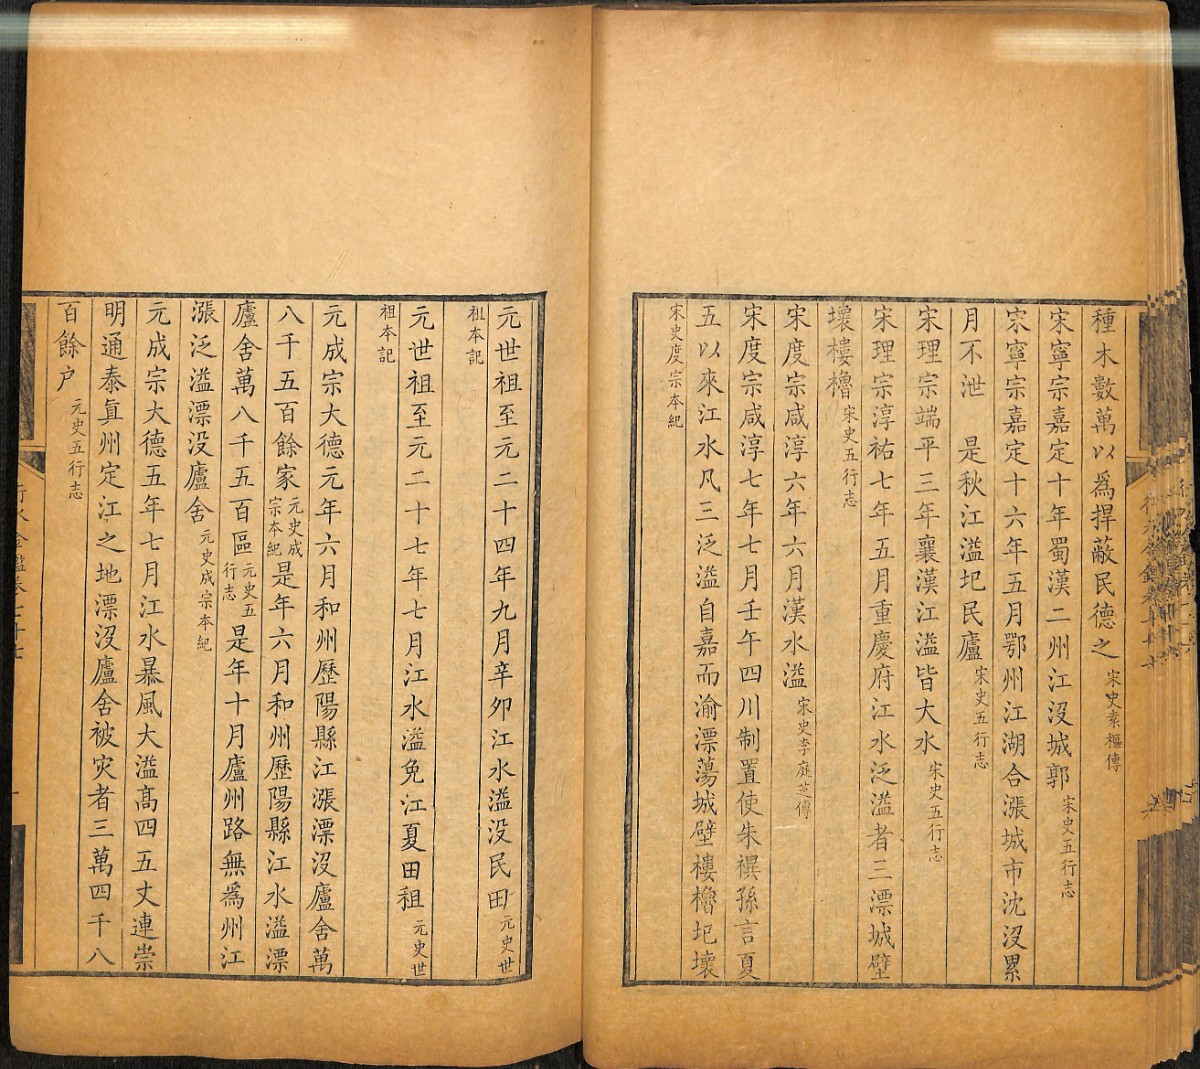 種木數萬以爲捍蔽民德之宋史袁樞傳
宋寧宗嘉定十年蜀漢二州江沒城郭宋史五行志
宋寧宗嘉定十六年五月鄂州江湖合漲城市沈沒累
月不泄 是秋江溢圮民廬宋史五行志
宋理宗端平三年襄漢江溢皆大水宋史五行志
宋理宗淳祐七年五月重慶府江水泛溢者三漂城壁
壞樓櫓宋史五行志
宋度宗咸淳六年六月漢水溢宋史李庭芝傳
宋度宗咸淳七年七月壬午四川制置使朱禩孫言夏
五以來江水凡三泛溢自嘉而渝漂蕩城壁樓櫓圮壞
宋史度宗本紀
元世祖至元二十四年九月辛卯江水溢没民田元史世
祖本記
元世祖至元二十七年七月江水溢免江夏田租元史世
祖本記
元成宗大德元年六月和州歷陽縣江漲漂沒廬舍萬
八千五百餘家元史成宗本紀是年六月和州歷陽縣江水溢漂
廬舍萬八千五百區元史五行志是年十月廬州路無爲州江
漲泛溢漂没廬舍元史成宗本紀
元成宗大德五年七月江水暴風大溢高四五丈連崇
明通泰眞州定江之地漂沒廬舍被灾者三萬四千八
百餘户元史五行志
行水金鑑卷七十七